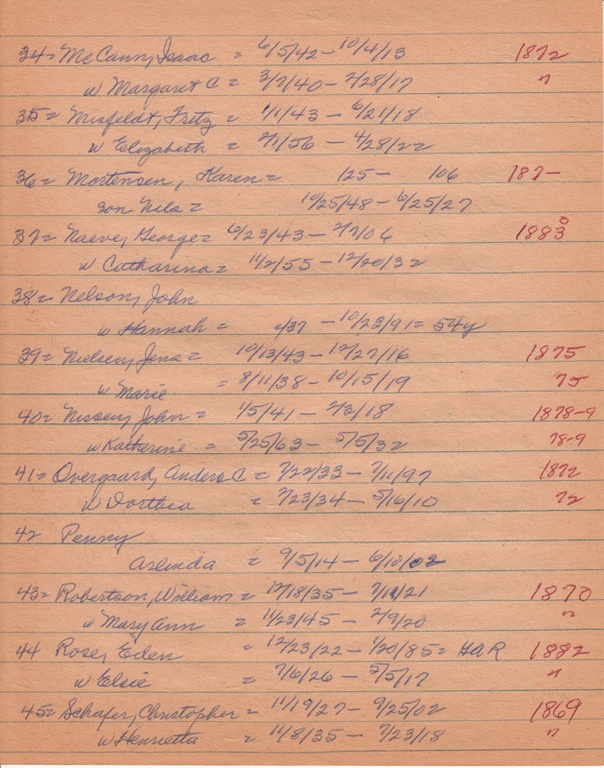 34= McCann, Isaac = 6/5/42 - 10/4/13 1872
w Margaret C = 3/7/40 - 2/28/17 "
35= Misfeldt, Fritz = 1/1/43 - 6/21/18
w Elizabeth = 2/1/56 - 4/28/22
36= Mortensen, Karen = 125 - 106 187-
son Nils = 10/25/48 - 6/25/27
37= Naeve, George = 6/23/43 - 2/7/06 1883
w Catharina = 11/2/55 - 12/20/32
38= Nelson, John
w Hannah = /37 - 10/23/91 = 54y
39= Nielsen, Jens = 10/13/43 - 12/27/16 1875
w Marie = 8/11/38 - 10/15/19 75
40= Nissen, John = 1/5/41 - 2/3/18 1878-9
w Katherine = 5/25/63 - 5/5/32 78-9
41= Overgaard, Anders C = 7/22/33 - 7/11/97 1872
w Dorthea = 7/23/34 - 5/16/10 72
42 Penny
Arlinda = 9/5/14 - 6/10/02
43= Robertson, William = 12/18/35 - 7/11/21 1870
w Mary Ann = 11/23/45 - 2/9/20 "
44 Rose, Eden = 12/23/22 - 1/20/85 = HAR 1882
w Elsie = 7/6/26 - 5/5/17 "
45= Schafer, Christopher = 11/19/27 - 9/25/02 1869
w Henrietta = 11/8/35 - 7/23/18 "